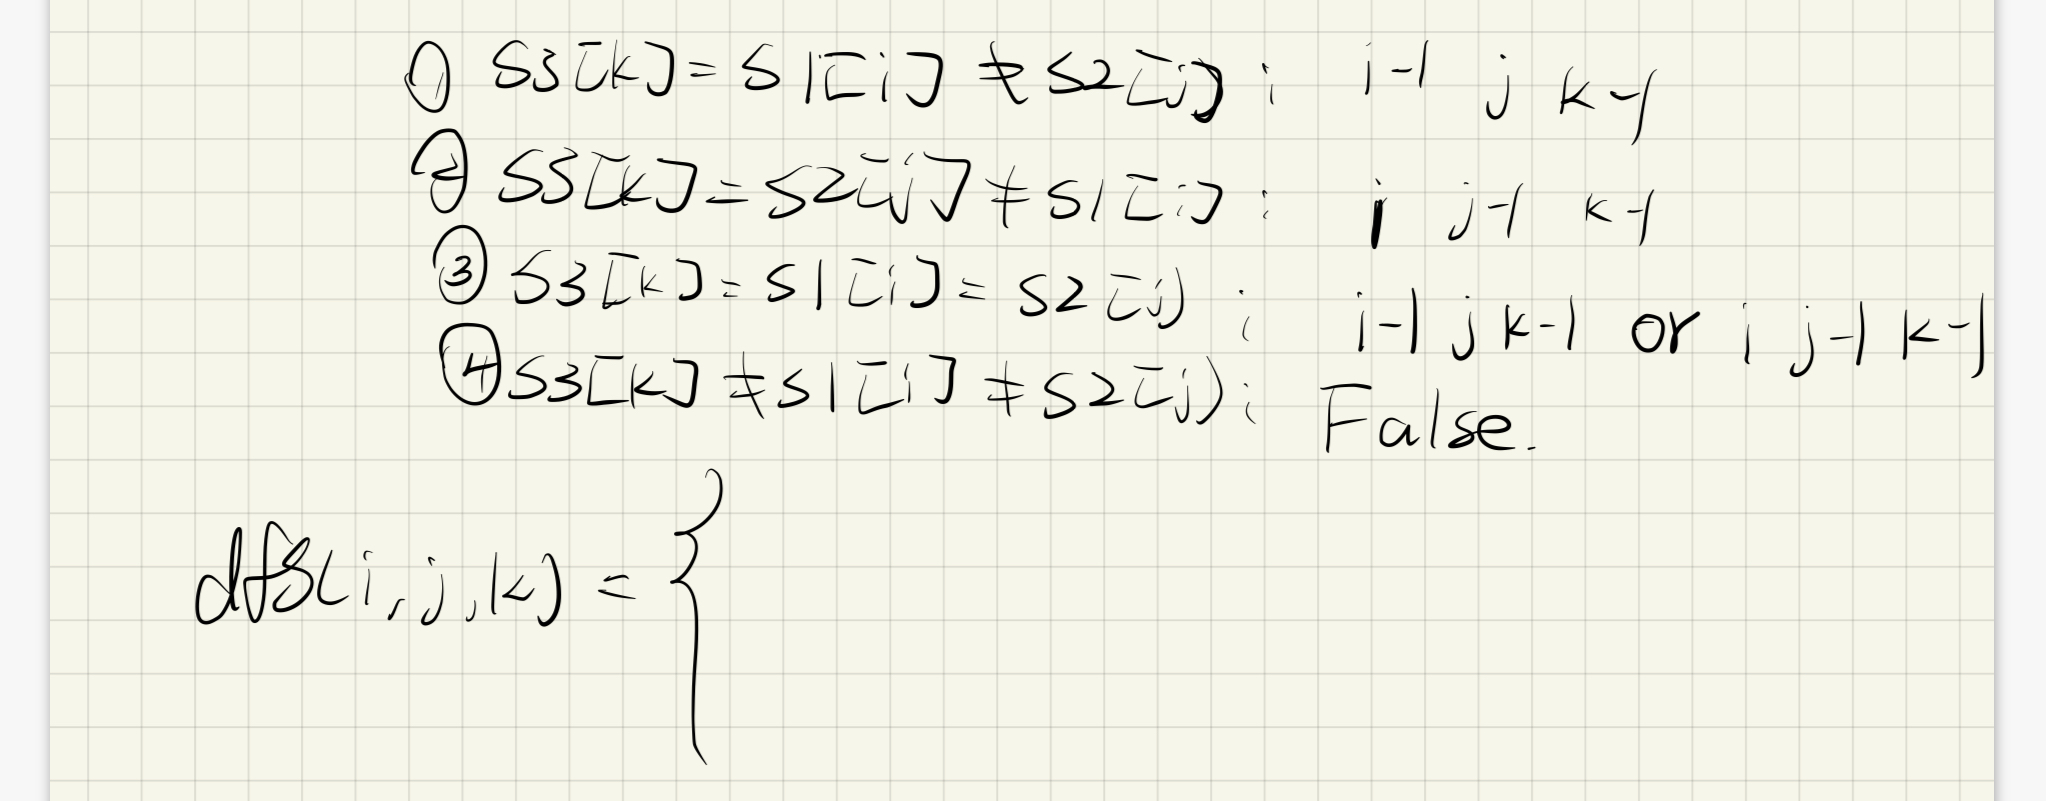 ① S3[k] = S1[i] ≠ S2[j] : i-1 j k-1
② S3[k] = S2[j] ≠ S1[i] : i j-1 k-1
③ S3[k] = S1[i] = S2[j] : i-1 j k-1 or i j-1 k-1
④ S3[k] ≠ S1[i] ≠ S2[j) : False.
dfs(i, j, k) = {